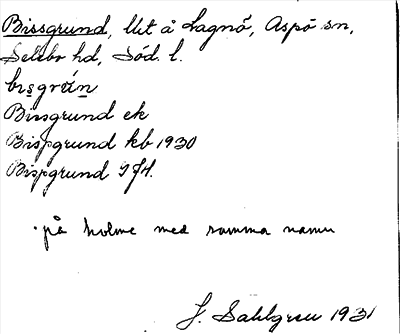 Bissgrund, lht å Lagnö, Aspö sn,
Selebo hd, Söd. l.
bisgrún
Bissgrund ek
Bispgrund kb 1930
Bispgrund JfH.
på holme med samma namn
J. Sahlgren 1931